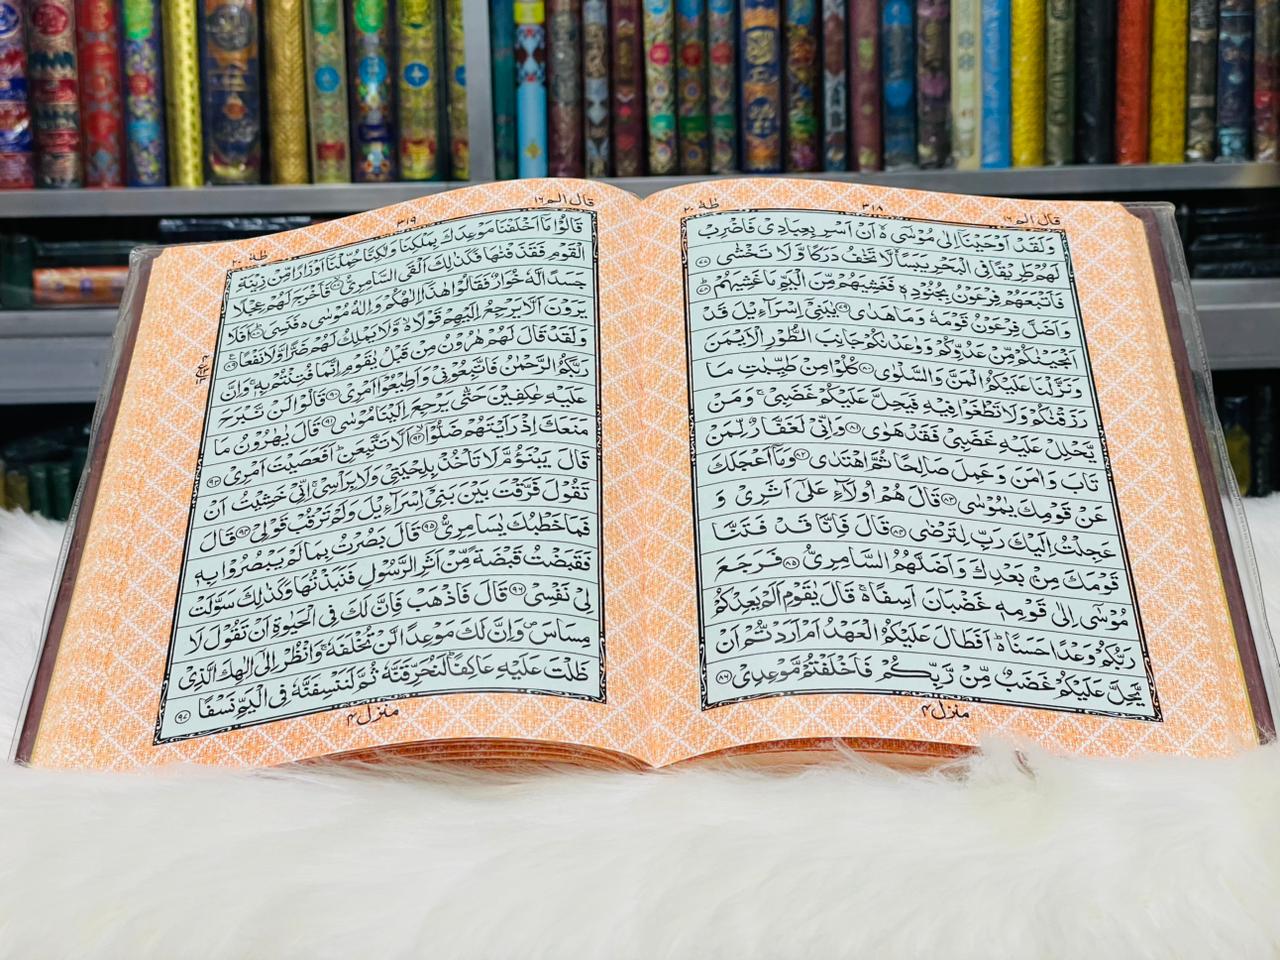 قال الم ١٦
٣١٨
طٰهٰ ٢٠
وَلَقَدْ اَوْحَيْنَاۤ اِلٰى مُوْسٰۤى ەۙ اَنْ اَسْرِ بِعِبَادِىْ فَاضْرِبْ
لَهُمْ طَرِيْقًا فِى الْبَحْرِ يَبَسًاۙ لَّا تَخٰفُ دَرَكًا وَّلَا تَخْشٰى ۝٧٧
فَاَتْبَعَهُمْ فِرْعَوْنُ بِجُنُوْدِهٖ فَغَشِيَهُمْ مِّنَ الْيَمِّ مَا غَشِيَهُمْ ۝٧٨
وَاَضَلَّ فِرْعَوْنُ قَوْمَهٗ وَمَا هَدٰى ۝٧٩ يٰبَنِىْۤ اِسْرَآءِيْلَ قَدْ
اَنْجَيْنٰكُمْ مِّنْ عَدُوِّكُمْ وَوٰعَدْنٰكُمْ جَانِبَ الطُّوْرِ الْاَيْمَنَ
وَنَزَّلْنَا عَلَيْكُمُ الْمَنَّ وَالسَّلْوٰى ۝٨٠ كُلُوْا مِنْ طَيِّبٰتِ مَا
رَزَقْنٰكُمْ وَلَا تَطْغَوْا فِيْهِ فَيَحِلَّ عَلَيْكُمْ غَضَبِىْۚ وَمَنْ
يَّحْلِلْ عَلَيْهِ غَضَبِىْ فَقَدْ هَوٰى ۝٨١ وَاِنِّىْ لَغَفَّارٌ لِّمَنْ
تَابَ وَاٰمَنَ وَعَمِلَ صَالِحًا ثُمَّ اهْتَدٰى ۝٨٢ وَمَاۤ اَعْجَلَكَ
عَنْ قَوْمِكَ يٰمُوْسٰى ۝٨٣ قَالَ هُمْ اُولَآءِ عَلٰۤى اَثَرِىْ وَ
عَجِلْتُ اِلَيْكَ رَبِّ لِتَرْضٰى ۝٨٤ قَالَ فَاِنَّا قَدْ فَتَنَّا
قَوْمَكَ مِنْۢ بَعْدِكَ وَاَضَلَّهُمُ السَّامِرِىُّ ۝٨٥ فَرَجَعَ
مُوْسٰۤى اِلٰى قَوْمِهٖ غَضْبَانَ اَسِفًا ەۚ قَالَ يٰقَوْمِ اَلَمْ يَعِدْكُمْ
رَبُّكُمْ وَعْدًا حَسَنًا ەؕ اَفَطَالَ عَلَيْكُمُ الْعَهْدُ اَمْ اَرَدْتُّمْ اَنْ
يَّحِلَّ عَلَيْكُمْ غَضَبٌ مِّنْ رَّبِّكُمْ فَاَخْلَفْتُمْ مَّوْعِدِىْ ۝٨٦
منزل ٤
قال الم ١٦
٣١٩
طٰهٰ ٢٠
قَالُوْا مَاۤ اَخْلَفْنَا مَوْعِدَكَ بِمَلْكِنَا وَلٰكِنَّا حُمِّلْنَاۤ اَوْزَارًا مِّنْ زِيْنَةِ
الْقَوْمِ فَقَذَفْنٰهَا فَكَذٰلِكَ اَلْقَى السَّامِرِىُّ ۝٨٧ فَاَخْرَجَ لَهُمْ عِجْلًا
جَسَدًا لَّهٗ خُوَارٌ فَقَالُوْا هٰذَاۤ اِلٰهُكُمْ وَاِلٰهُ مُوْسٰى ەۚ فَنَسِىَ ۝٨٨ اَفَلَا
يَرَوْنَ اَلَّا يَرْجِعُ اِلَيْهِمْ قَوْلًا ەۙ وَّلَا يَمْلِكُ لَهُمْ ضَرًّا وَّلَا نَفْعًا ۝٨٩
وَلَقَدْ قَالَ لَهُمْ هٰرُوْنُ مِنْ قَبْلُ يٰقَوْمِ اِنَّمَا فُتِنْتُمْ بِهٖۚ وَاِنَّ
رَبَّكُمُ الرَّحْمٰنُ فَاتَّبِعُوْنِىْ وَاَطِيْعُوْۤا اَمْرِىْ ۝٩٠ قَالُوْا لَنْ نَّبْرَحَ
عَلَيْهِ عٰكِفِيْنَ حَتّٰى يَرْجِعَ اِلَيْنَا مُوْسٰى ۝٩١ قَالَ يٰهٰرُوْنُ مَا
مَنَعَكَ اِذْ رَاَيْتَهُمْ ضَلُّوْۤا ۝٩٢ اَلَّا تَتَّبِعَنِؕ اَفَعَصَيْتَ اَمْرِىْ ۝٩٣
قَالَ يَبْنَؤُمَّ لَا تَاْخُذْ بِلِحْيَتِىْ وَلَا بِرَاْسِىْۚ اِنِّىْ خَشِيْتُ اَنْ
تَقُوْلَ فَرَّقْتَ بَيْنَ بَنِىْۤ اِسْرَآءِيْلَ وَلَمْ تَرْقُبْ قَوْلِىْ ۝٩٤ قَالَ
فَمَا خَطْبُكَ يٰسَامِرِىُّ ۝٩٥ قَالَ بَصُرْتُ بِمَا لَمْ يَبْصُرُوْا بِهٖ
فَقَبَضْتُ قَبْضَةً مِّنْ اَثَرِ الرَّسُوْلِ فَنَبَذْتُهَا وَكَذٰلِكَ سَوَّلَتْ
لِىْ نَفْسِىْ ۝٩٦ قَالَ فَاذْهَبْ فَاِنَّ لَكَ فِى الْحَيٰوةِ اَنْ تَقُوْلَ لَا
مِسَاسَ۪ وَاِنَّ لَكَ مَوْعِدًا لَّنْ تُخْلَفَهٗۚ وَانْظُرْ اِلٰۤى اِلٰهِكَ الَّذِىْ
ظَلْتَ عَلَيْهِ عَاكِفًاؕ لَنُحَرِّقَنَّهٗ ثُمَّ لَنَنْسِفَنَّهٗ فِى الْيَمِّ نَسْفًا ۝٩٧
منزل ٤